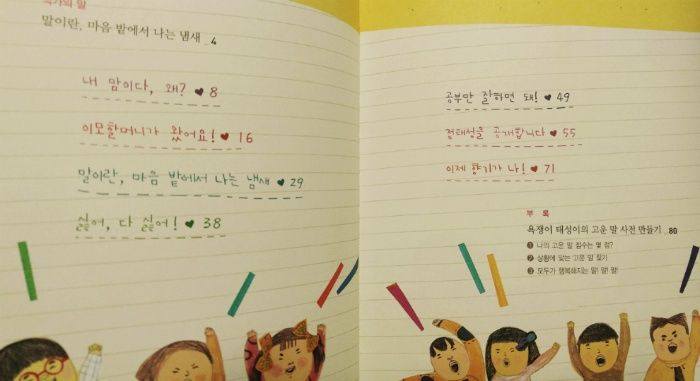 작가의 말
말이란, 마음 밭에서 나는 냄새 _ 4
내 맘이다, 왜? ♥ 8
이모할머니가 왔어요! ♥ 16
말이란, 마음 밭에서 나는 냄새 ♥ 29
싫어, 다 싫어! ♥ 38
공부만 잘하면 돼! ♥ 49
정태성을 공개합니다 ♥ 55
이제 향기가 나! ♥ 71
부 록
욕쟁이 태성이의 고운 말 사전 만들기 _ 80
❶ 나의 고운 말 점수는 몇 점?
❷ 상황에 맞는 고운 말 찾기
❸ 모두가 행복해지는 말! 말! 말!